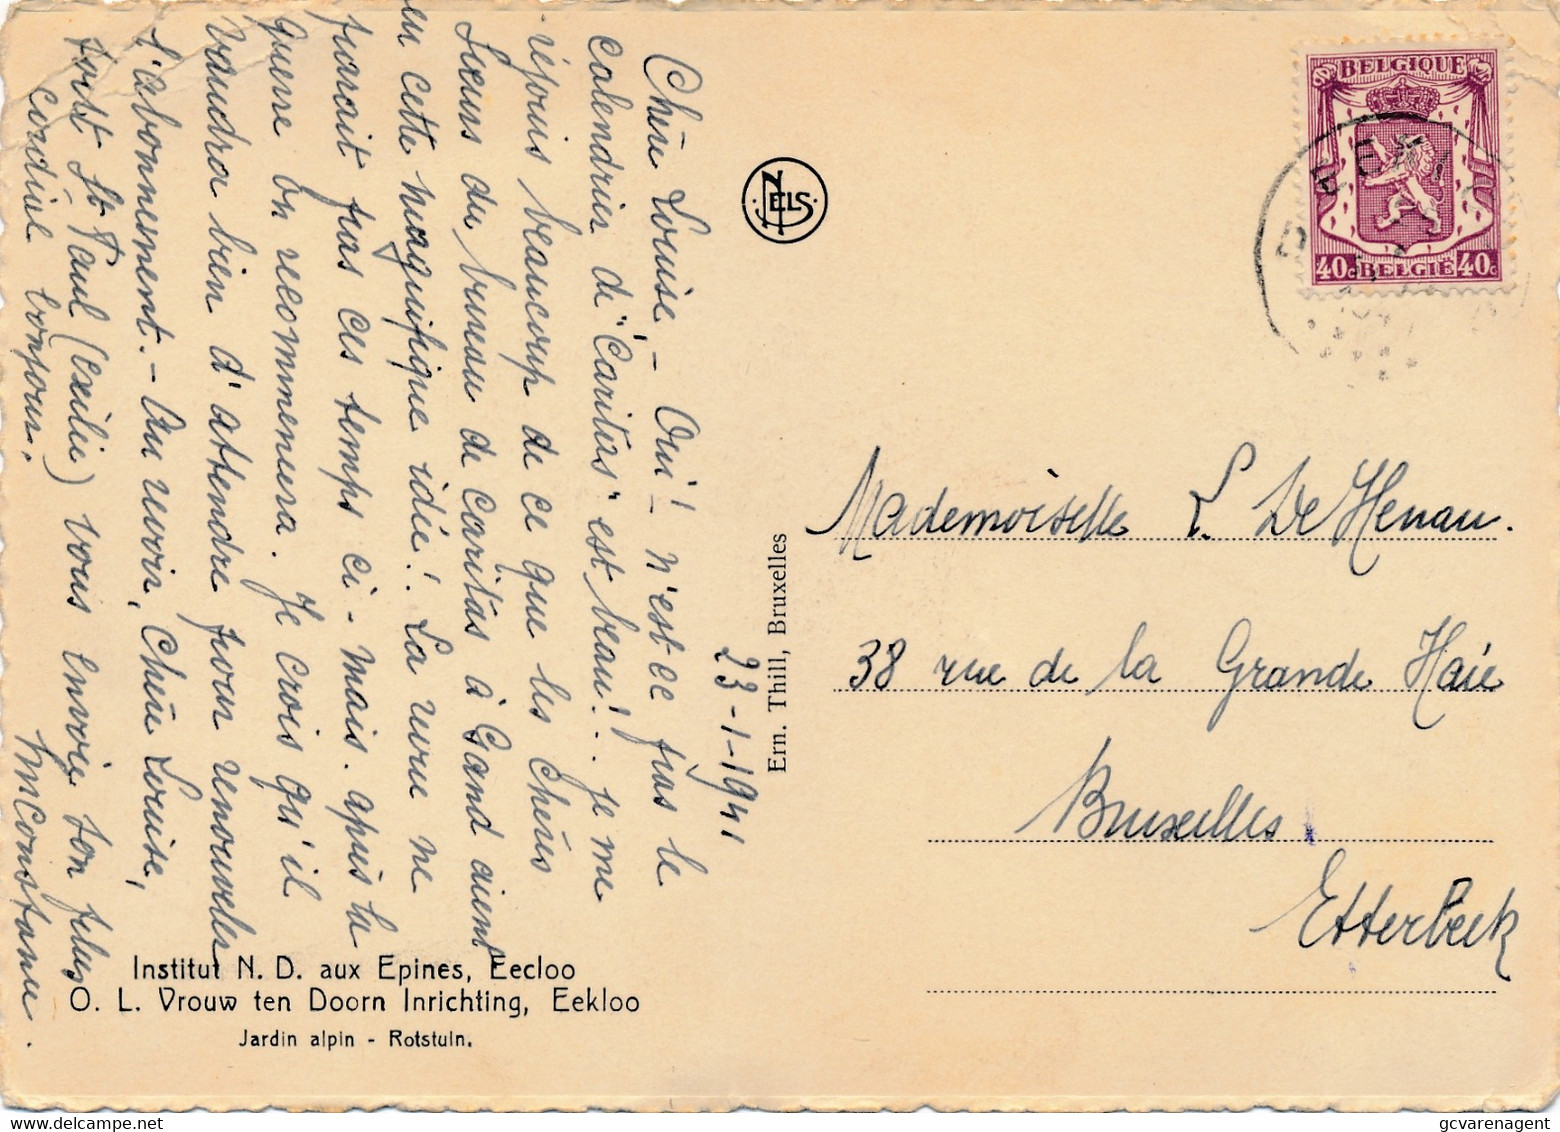 23-1-1941
Chère Louise – Oui! – n'est ce pas le
calendrier de "Caritas" est beau!.. je me
réjouis beaucoup de ce que les Chères
Sœurs du bureau de Caritas à Gand aient
eu cette magnifique idée! La revue ne
paraît pas ces temps ci – mais. après la
guerre on recommencera. Je crois qu'il
vaudra bien d'attendre pour renouveler
l'abonnement. – Au revoir, Chère Louise,
St Paul (exilée) vous envoie son plus
cordial bonjour.
M Constance.
Institut N. D. aux Epines, Eecloo
O. L. Vrouw ten Doorn Inrichting, Eekloo
Jardin alpin - Rotstuin.
NELS
Ern. Thill, Bruxelles
BELGIQUE
40c BELGIË 40c
Mademoiselle L. De Henau.
38 rue de la Grande Haie
Bruxelles
Etterbeek
gcvarenagent